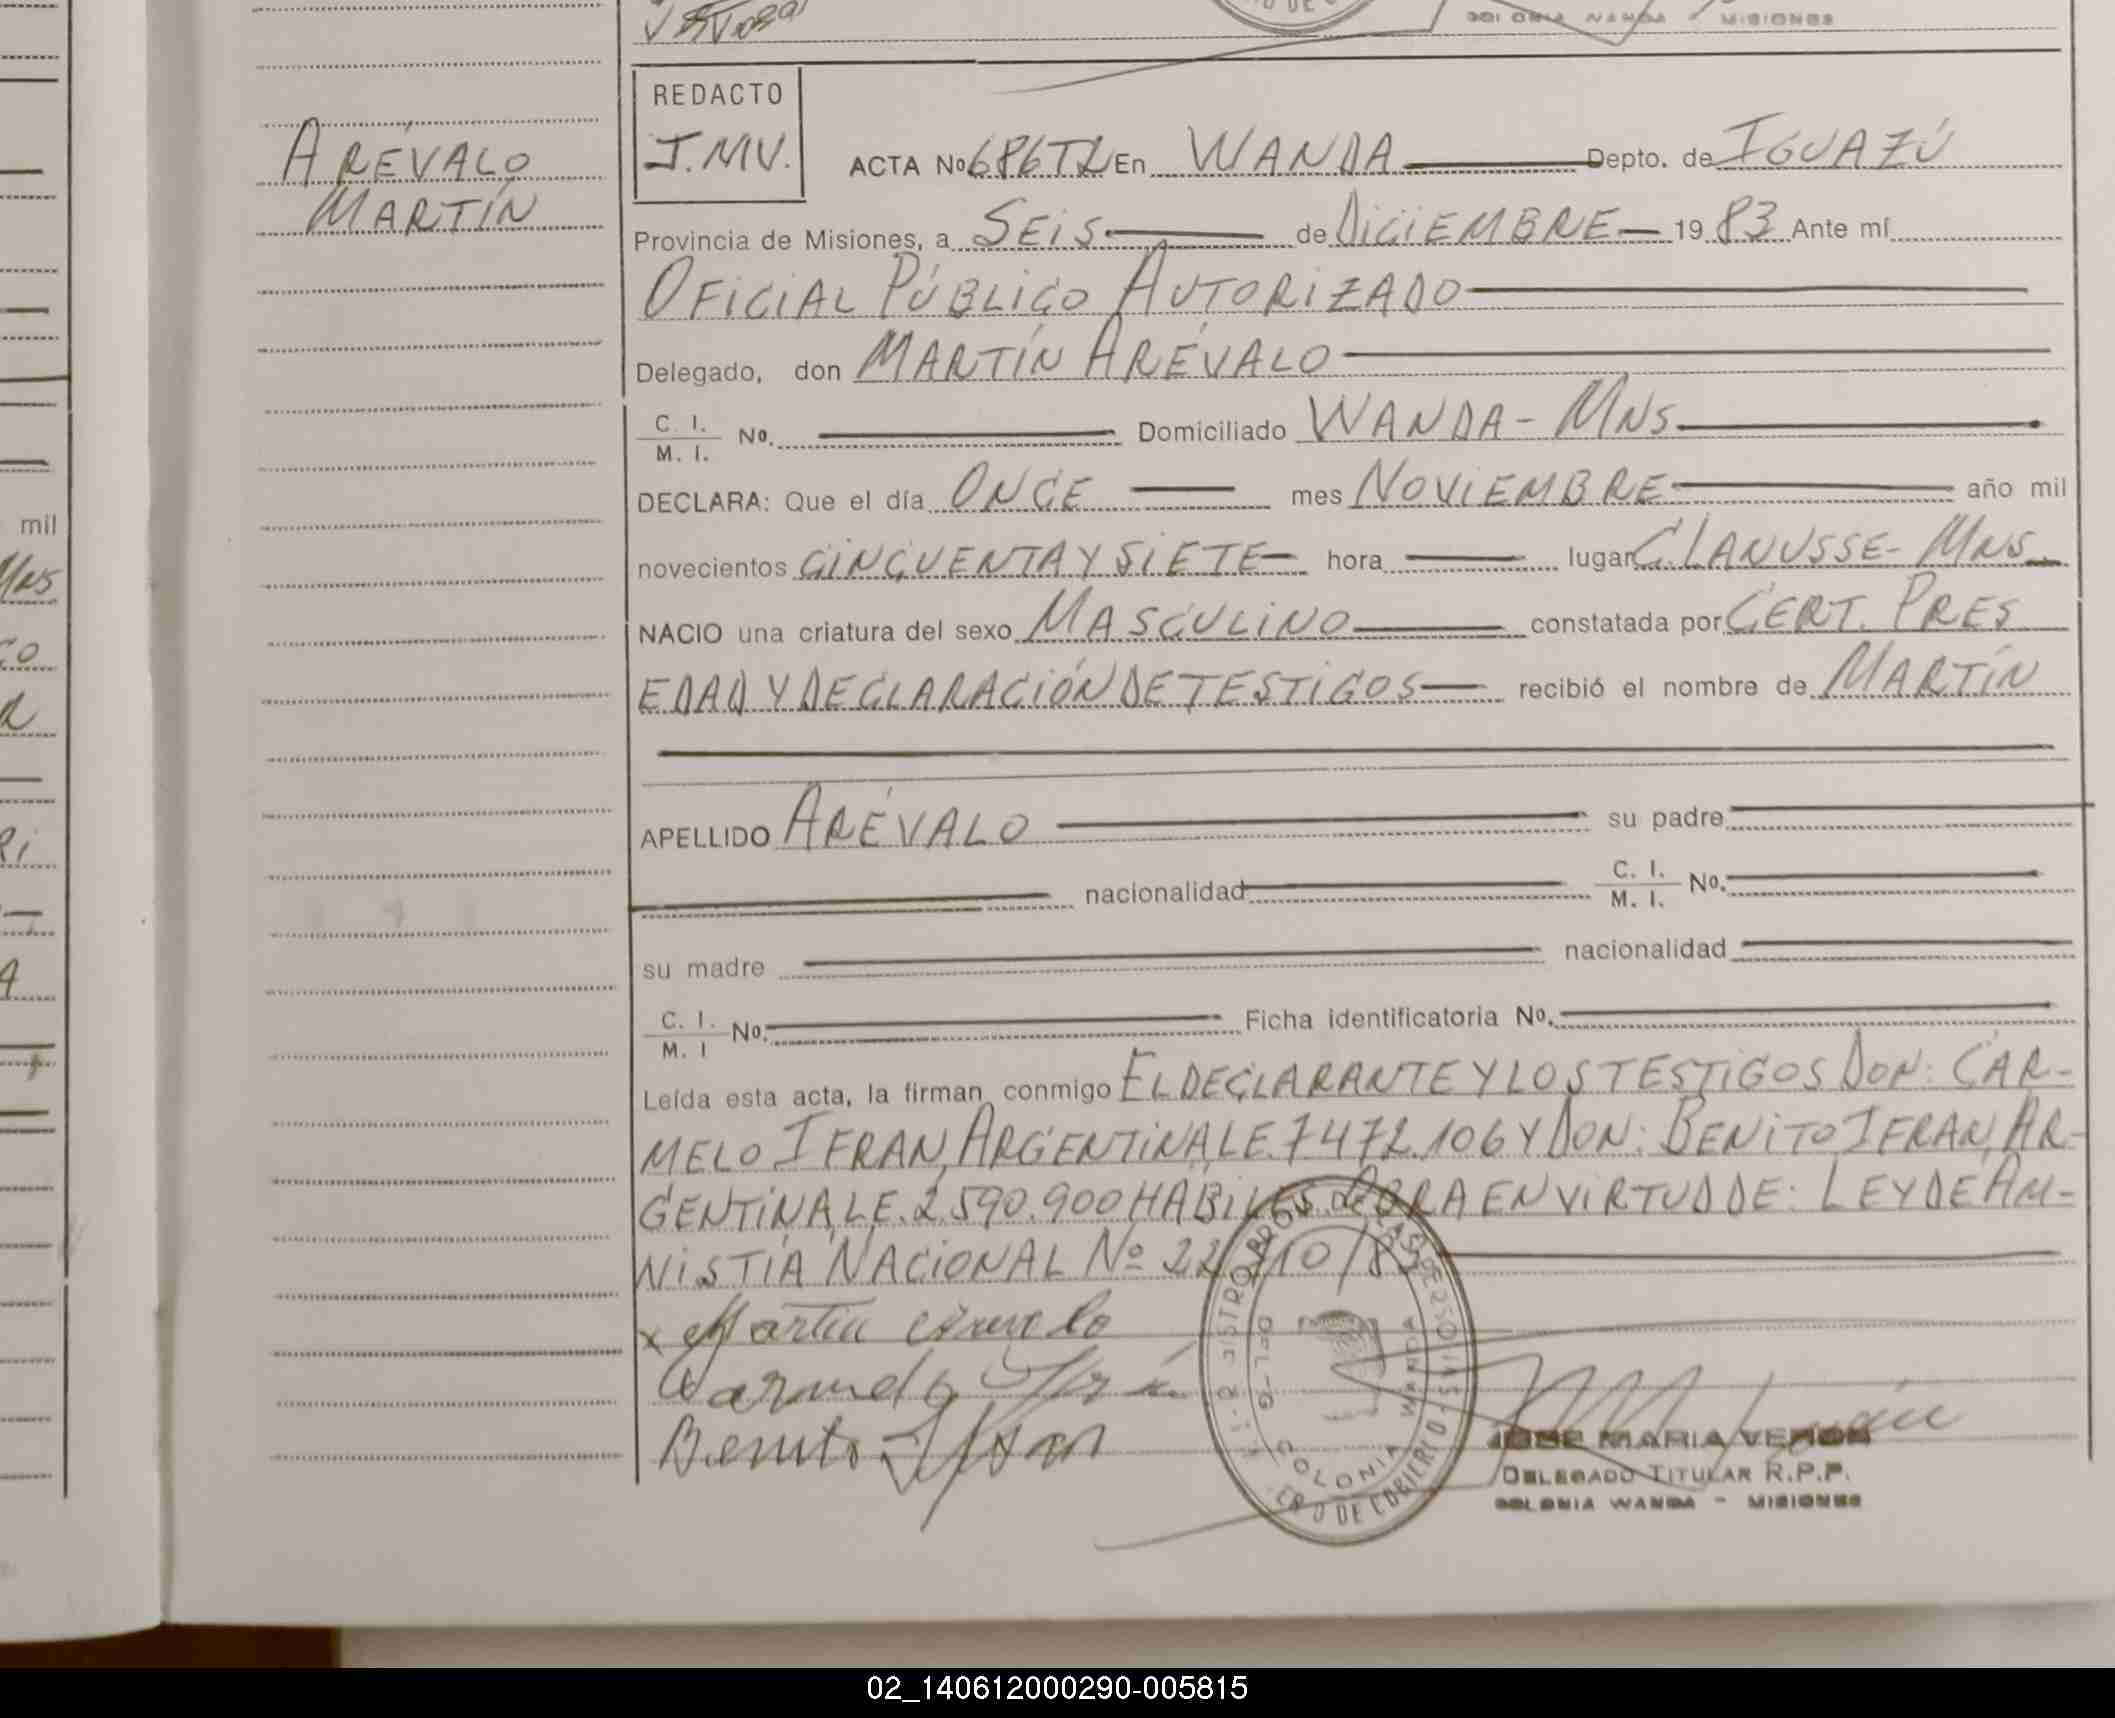 COLONIA WANDA - MISIONES
ARÉVALO
MARTÍN
REDACTO
J.MV.
ACTA Nº 686TL En WANDA Depto. de IGUAZÚ
Provincia de Misiones, a SEIS de DICIEMBRE 1983 Ante mí
OFICIAL PÚBLICO AUTORIZADO
Delegado, don MARTÍN ARÉVALO
C. I.
M. I. Nº. Domiciliado WANDA - MNS
DECLARA: Que el día ONCE mes NOVIEMBRE año mil
novecientos CINCUENTA Y SIETE hora lugar C. LANUSSE - MNS
NACIO una criatura del sexo MASCULINO constatada por CERT. PRES
EDAD Y DECLARACIÓN DE TESTIGOS recibió el nombre de MARTÍN
APELLIDO ARÉVALO su padre
nacionalidad C. I.
M. I. Nº.
su madre nacionalidad
C. I.
M. I Nº. Ficha identificatoria Nº.
Leída esta acta, la firman conmigo EL DECLARANTE Y LOS TESTIGOS DON: CAR-
MELO IFRAN, ARGENTINA, L.E. 7472.106 Y DON: BENITO IFRAN, AR-
GENTINA, L.E. 2.590.900 HABILES. OBRA EN VIRTUD DE: LEY DE AM-
NISTÍA NACIONAL Nº 22 10/8
x Martin
Benito Ifran
COLONIA WANDA
JOSE MARIA VERON
DELEGADO TITULAR R.P.P.
COLONIA WANDA - MISIONES
mil
MNS
CO
R
RI
A
02_140612000290-005815